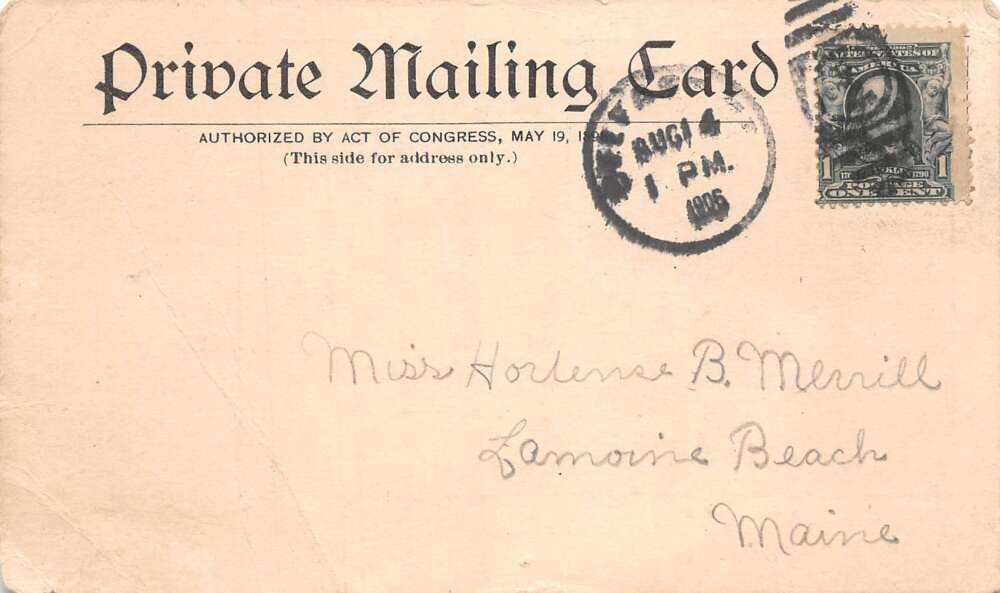 Private Mailing Card
AUTHORIZED BY ACT OF CONGRESS, MAY 19, 189
(This side for address only.)
AUG 14
1 PM.
1906
UNITED STATES OF
AMERICA
1 1
POSTAGE
ONE CENT
Miss Hortense B. Merrill
Lamoine Beach
Maine